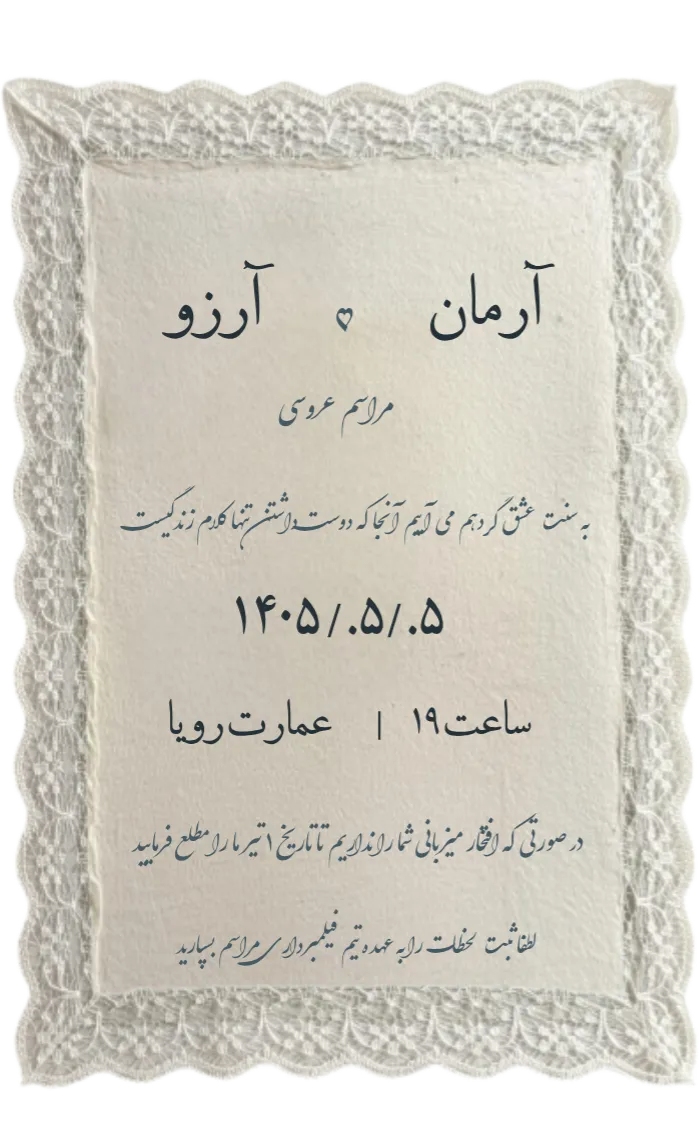 آرمان ♡ آرزو
مراسم عروسی
به سنت عشق گرد هم می آییم آنجا که دوست داشتن تنها کلام زندگیست
۱۴۰۵/۰۵/۰۵
ساعت ۱۹ | عمارت رویا
در صورتی که افتخار میزبانی شما را نداریم تا تاریخ ۱ تیر ما را مطلع فرمایید
لطفا ثبت لحظات را به عهده تیم فیلمبرداری مراسم بسپارید